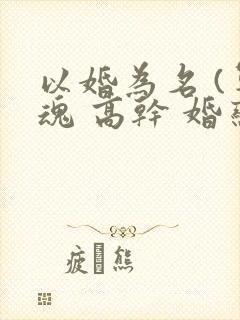 以婚為名(
魂 高幹 婚
疲 熊